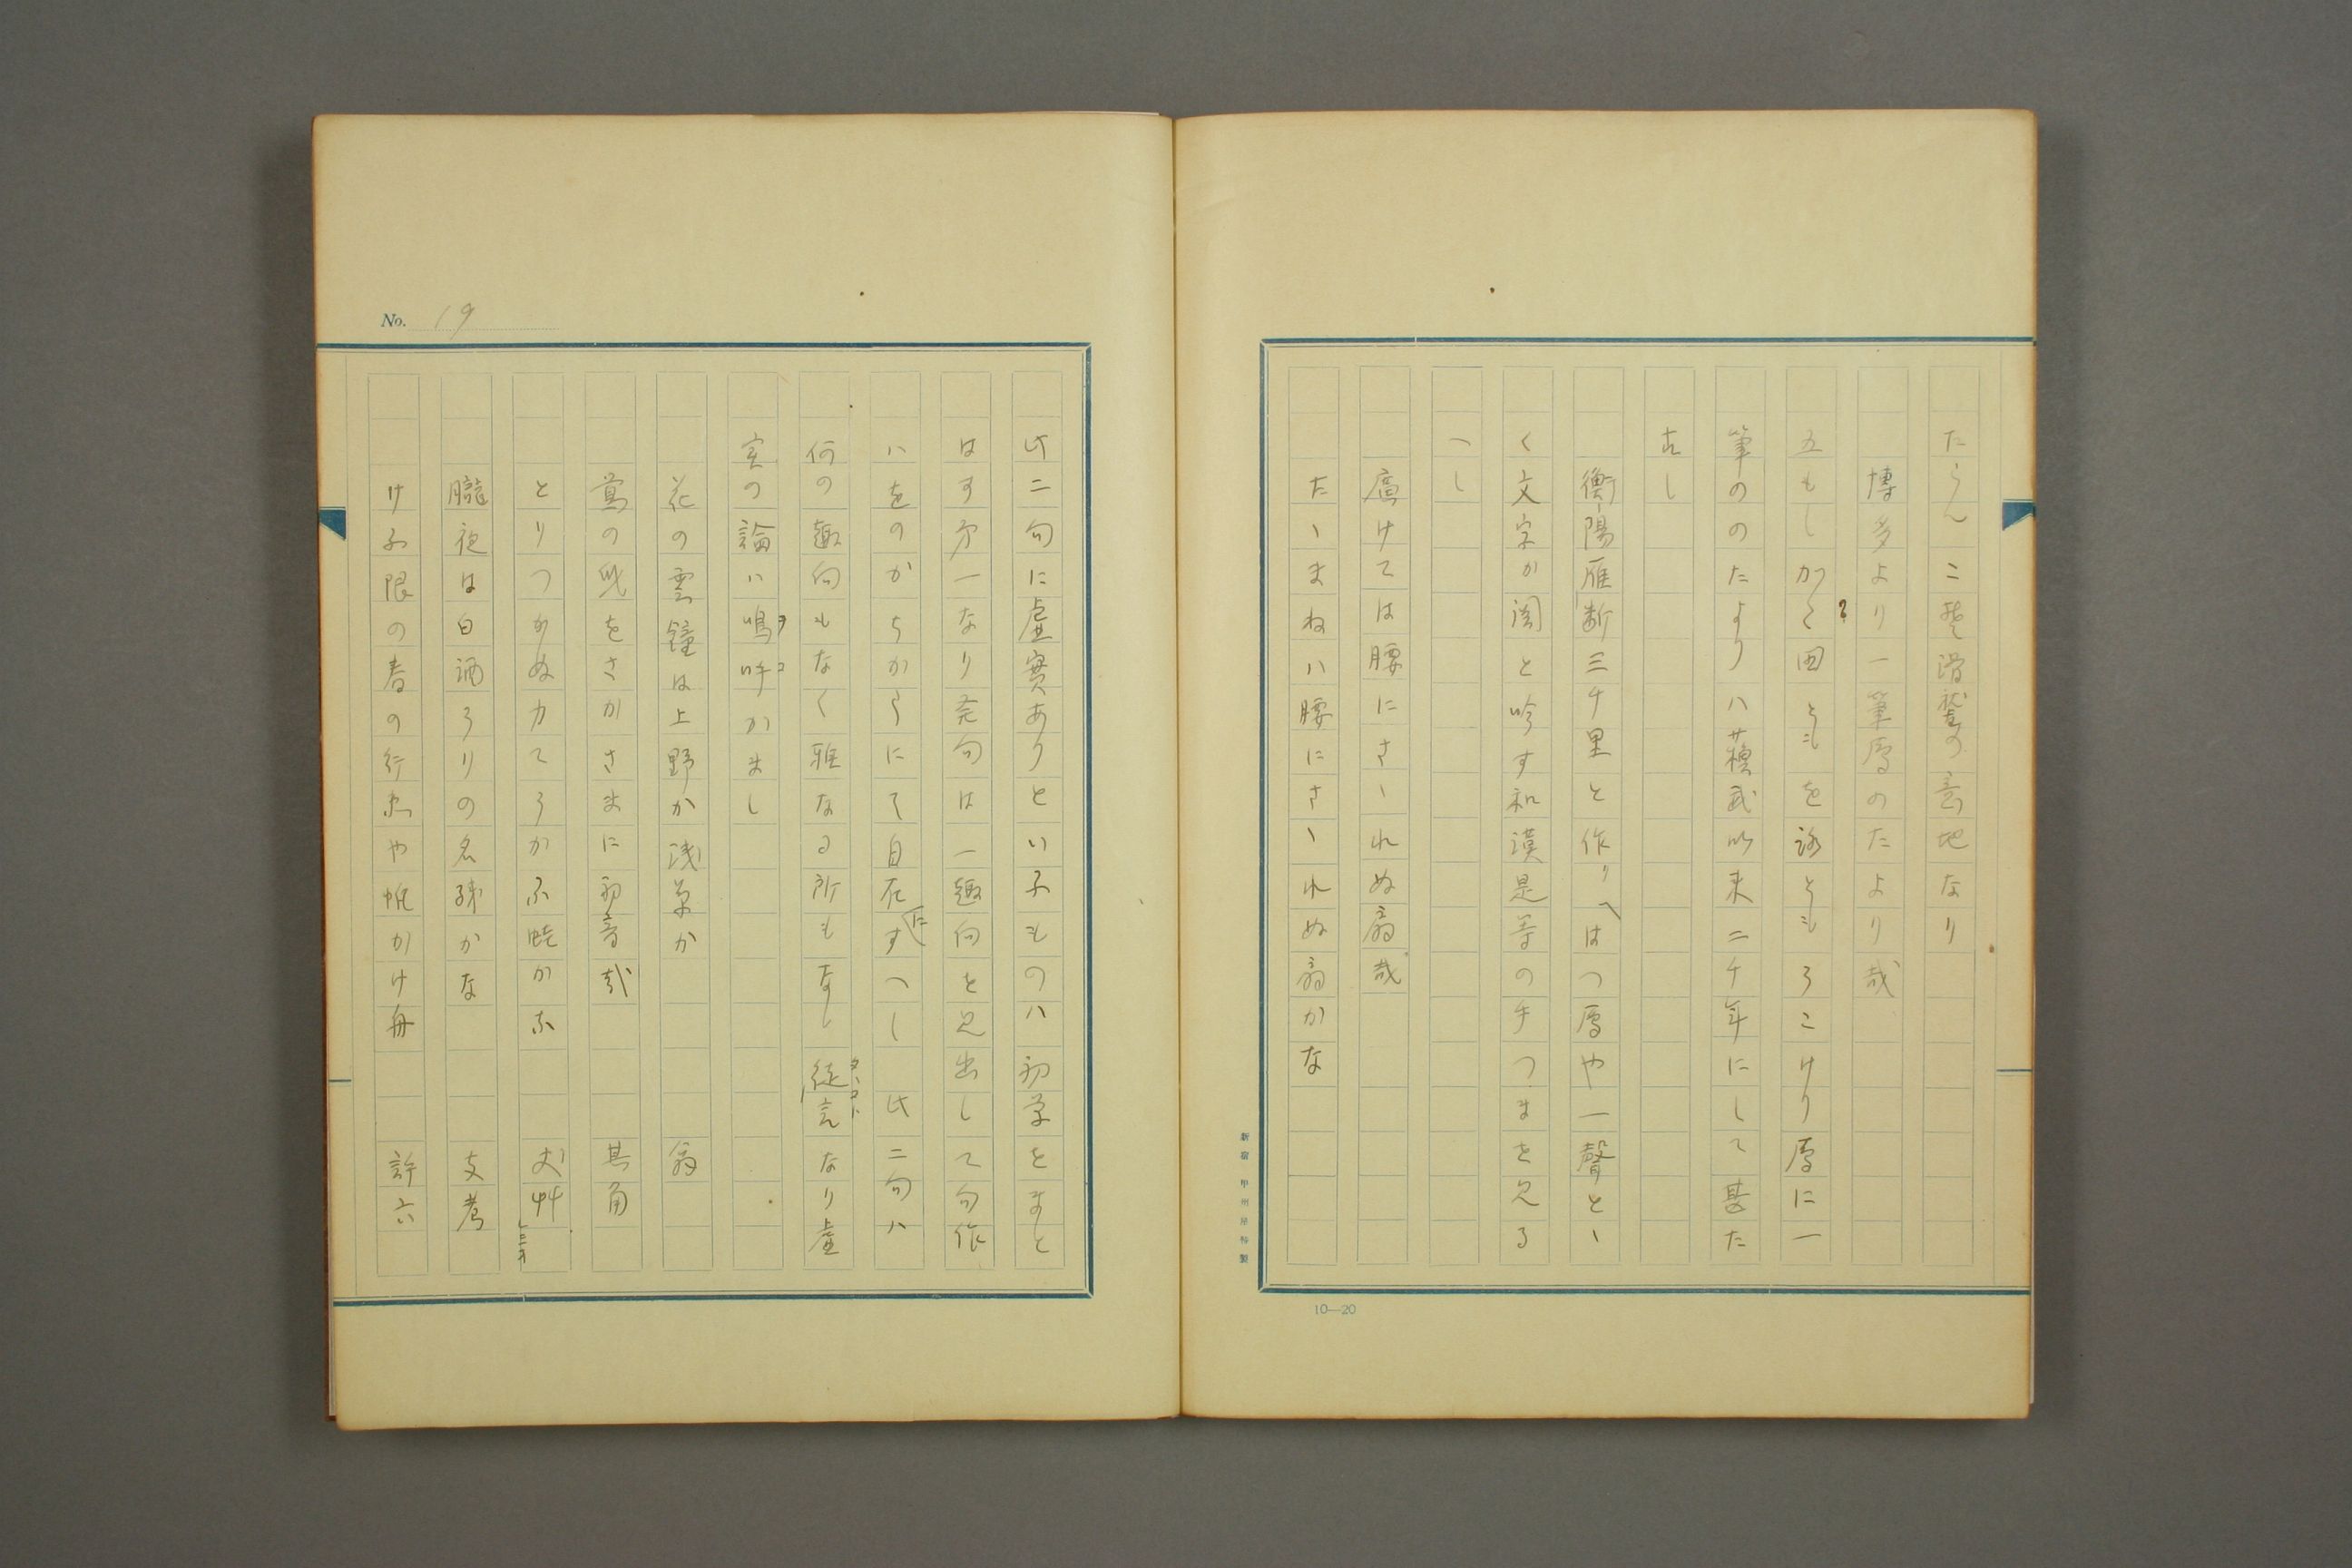 たらんこそ滑稽の意地なり
博多より一筆雁のたより哉
五もしかく田ともを詠ともろこけり雁に一
筆ののたよりハ蘓武以来二千年にして甚た
古し
衝陽雁断三千里と作りはつ雁や一聲とヽ
く文字か関と吟す和漢是等の手つまを見る
へし
廣けては腰にさヽれぬ扇哉
たヽまねハ腰にさヽれぬ扇かな
新宿 甲州屋特製
10—20
No. 19
此二句に虚實ありといふものハ初学をまと
はす第一なり発句は一趣向を見出して句作
ハをのからからにて自在にすへし 此二句ハ
何の趣向もなく雅なる所もなし 徒言なり虚
タヽコト
実の論ハ嗚呼かまし
ヲコ
花の雲鐘は上野か浅草か 翁
鶯の身をさかさまに初音哉 其角
とりつかぬ力てうかふ蛙かな 丈艸
朧夜は白酒うりの名残かな 支考
けふ限の春の行恵や帆かけ舟 許六